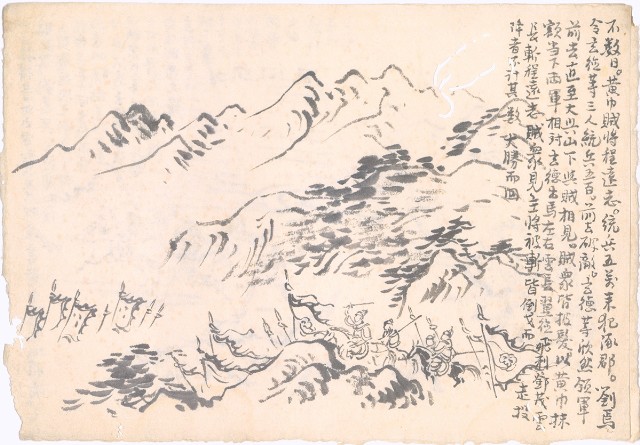 不数日。黄巾賊將程遠志。統兵五萬来犯涿郡。劉焉
令玄德等三人統兵五百。前去破敵。玄德等欣然領軍
前去直至大兴山下與賊相見。賊衆皆披髮以黄巾抹
額當下兩軍相対玄德出馬左右雲長翼德刺鄧茂雲
長斬程遠志賊衆見主將被斬皆倒戈而走投
降者不計其數大勝而回